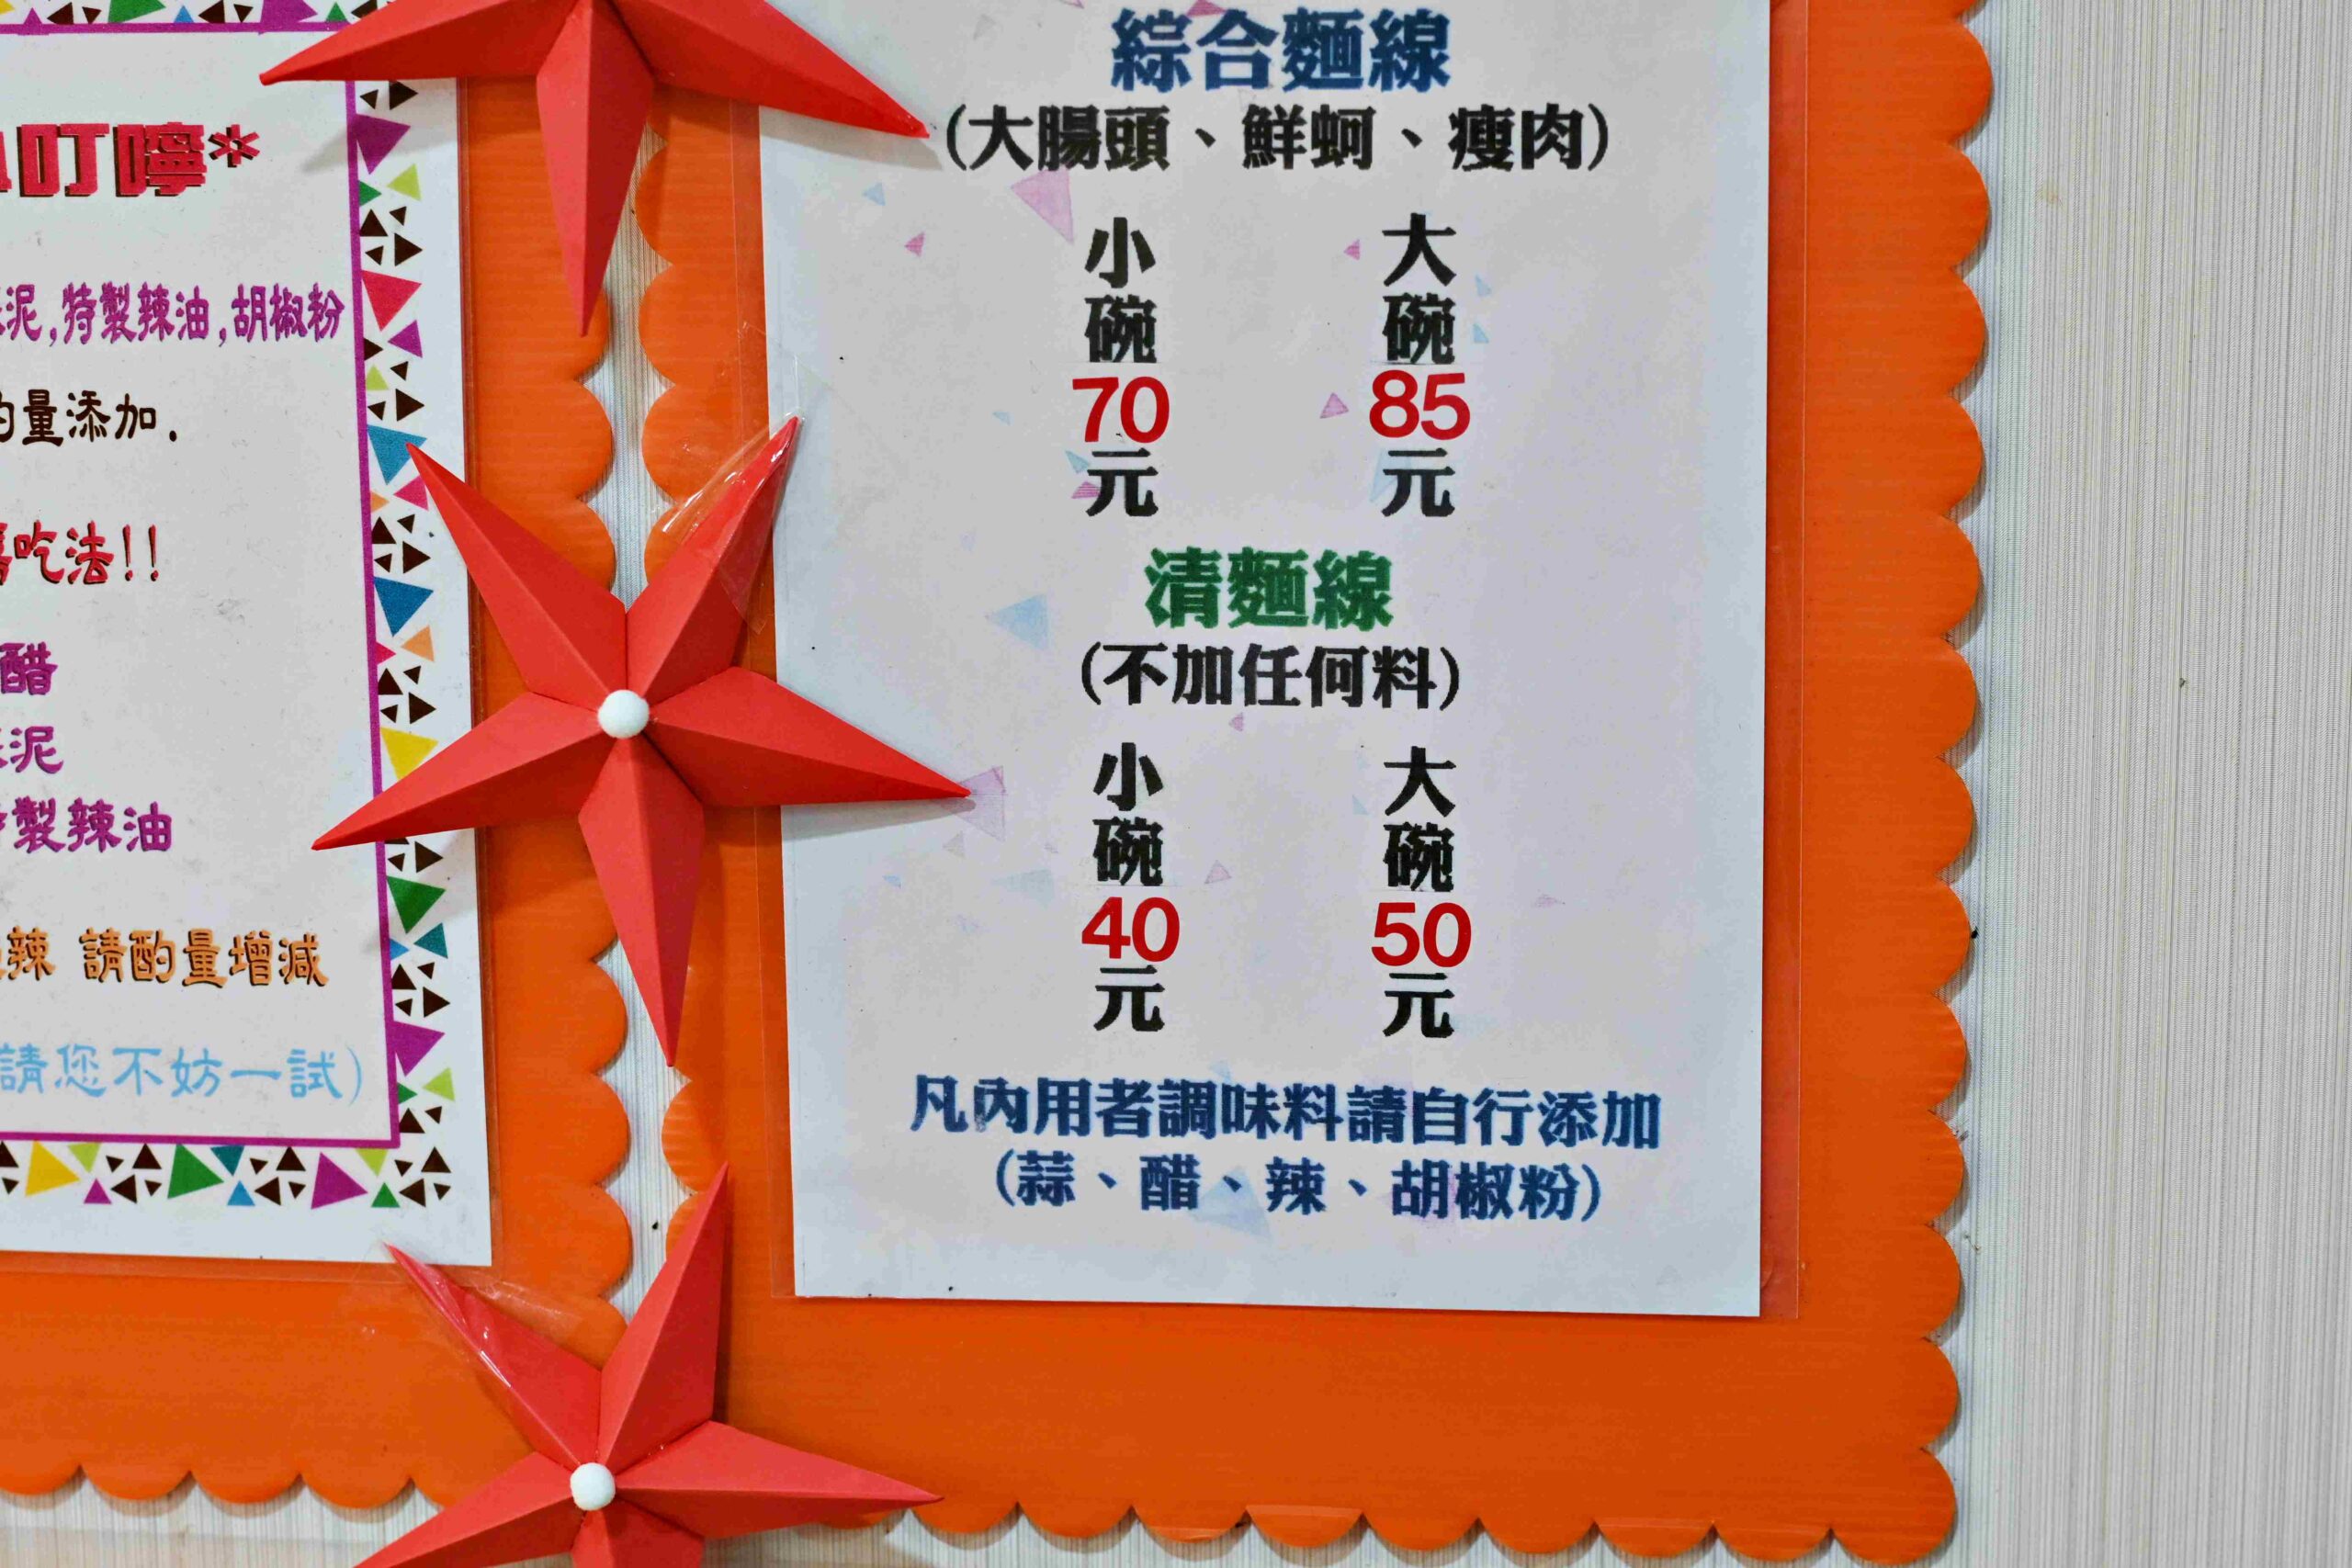 叮嚀*
泥,特製辣油,胡椒粉
量添加.
吃法!!
醋
泥
製辣油
辣 請酌量增減
請您不妨一試)
綜合麵線
(大腸頭、鮮蚵、瘦肉)
小碗70元
大碗85元
清麵線
(不加任何料)
小碗40元
大碗50元
凡內用者調味料請自行添加
(蒜、醋、辣、胡椒粉)